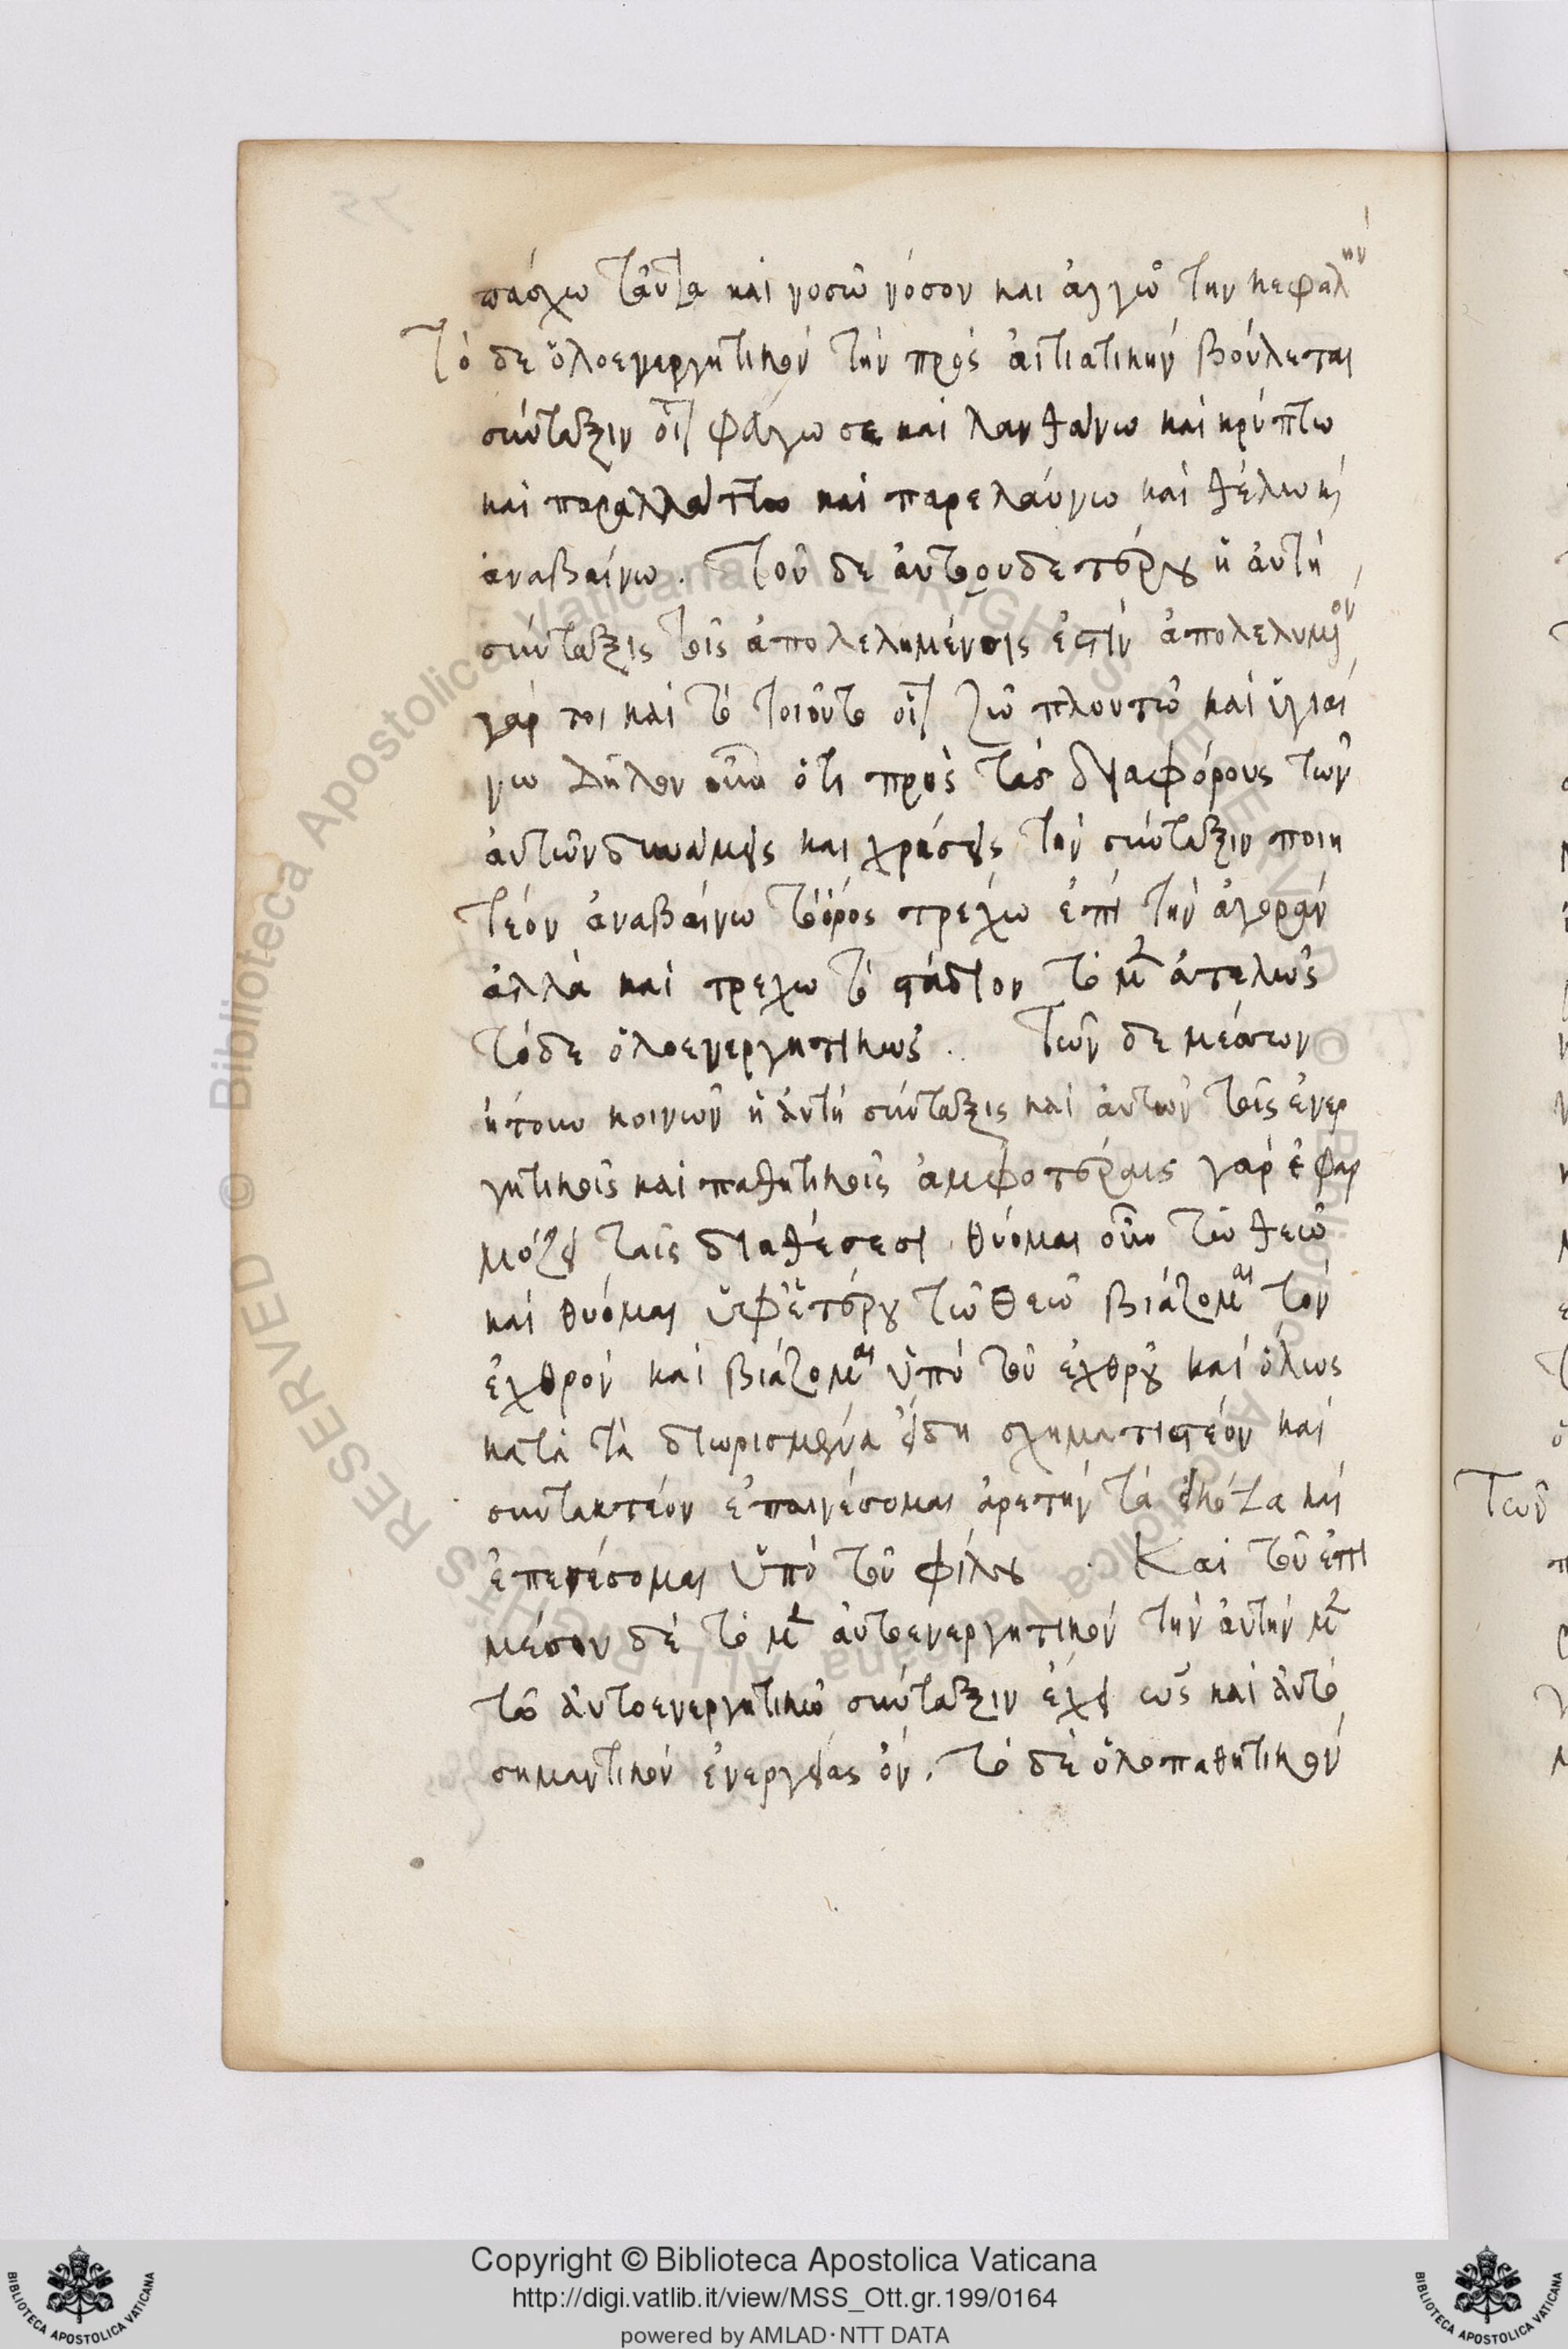 πάσχω ταῦτα καὶ νοσῶ νόσον και ἀλγῶ την κεφαλὴν
Τὸ δε ὁλοενεργητικὸν τὴν πρὸς ἀιτιατικην βούλεται
σύνταξιν οἷ φθάνω σε καὶ λανθάνω καὶ κρύπτω
καὶ παραλλάττω καὶ παρελαύνω καὶ θέλω κ
ἀναβαίνω. Τοῦ δε ἀυτουδετέρου ἡ ἀυτὴ
σύνταξις τοῖς ἀπολελημένοις ἐστὶν ἀπολελυμ
γάρ τοι καὶ τὸ τοιοῦτο οἷ ζῶ πλουτῶ καὶ ὑγιαί
νω Δῆλον οὖν ὅτι πρὸς τὰς διαφόρους τῶν
ἀυτῶν δυνάμεις και χρήσεις τὴν σύνταξιν ποιη
τέον ἀναβαίνω τὸ ὄρος τρέχω ἐπὶ τὴν ἀγορὰν
ἀλλὰ καὶ τρεχω τὸ στάδιον τὸ μ ἀτελῶς
τὸ δε ὁλοενεργητικῶς . Τῶν δε μέσων
ἤτουν κοινῶν ἡ ἀυτὴ σύνταξις καὶ ἀυτῶν τοῖς ἐνερ
γητικοῖς καὶ παθητικοῖς ἀμφοτέραις γὰρ ἐφαρ
μόζει ταῖς διαθέσεσι θύομαι οὖν τῶ θεῶ
καὶ θυόμαι ὑφ' ἑτέρου τῶ θεῶ βιάζομαι τὸν
ἐχθρὸν καὶ βιάζομαι ὑπὸ τοῦ ἐχθροῦ καὶ ὅλως
κατὰ τὰ διωρισμένα εἴδη σχηματιστέον καὶ
συντακτέον ἐπαινέσομαι ἀρετὴν τὰ εἰκότα καὶ
ἐπενέσομαι ὑπὸ τοῦ φίλου . Καὶ τοῦ ἐπι
μέσον δὲ τὸ μ ἀυτοενεργητικὸν τὴν ἀυτὴν μ
τῶ ἀυτοενεργητικῶ σύνταξιν ἔχει ὡς καὶ ἀυτὸ
σημαντικὸν ἐνεργείας ὄν. Τὸ δὲ ὁλοπαθητικὸν
Copyright © Biblioteca Apostolica Vaticana
http://digi.vatlib.it/view/MSS_Ott.gr.199/0164
powered by AMLAD·NTT DATA